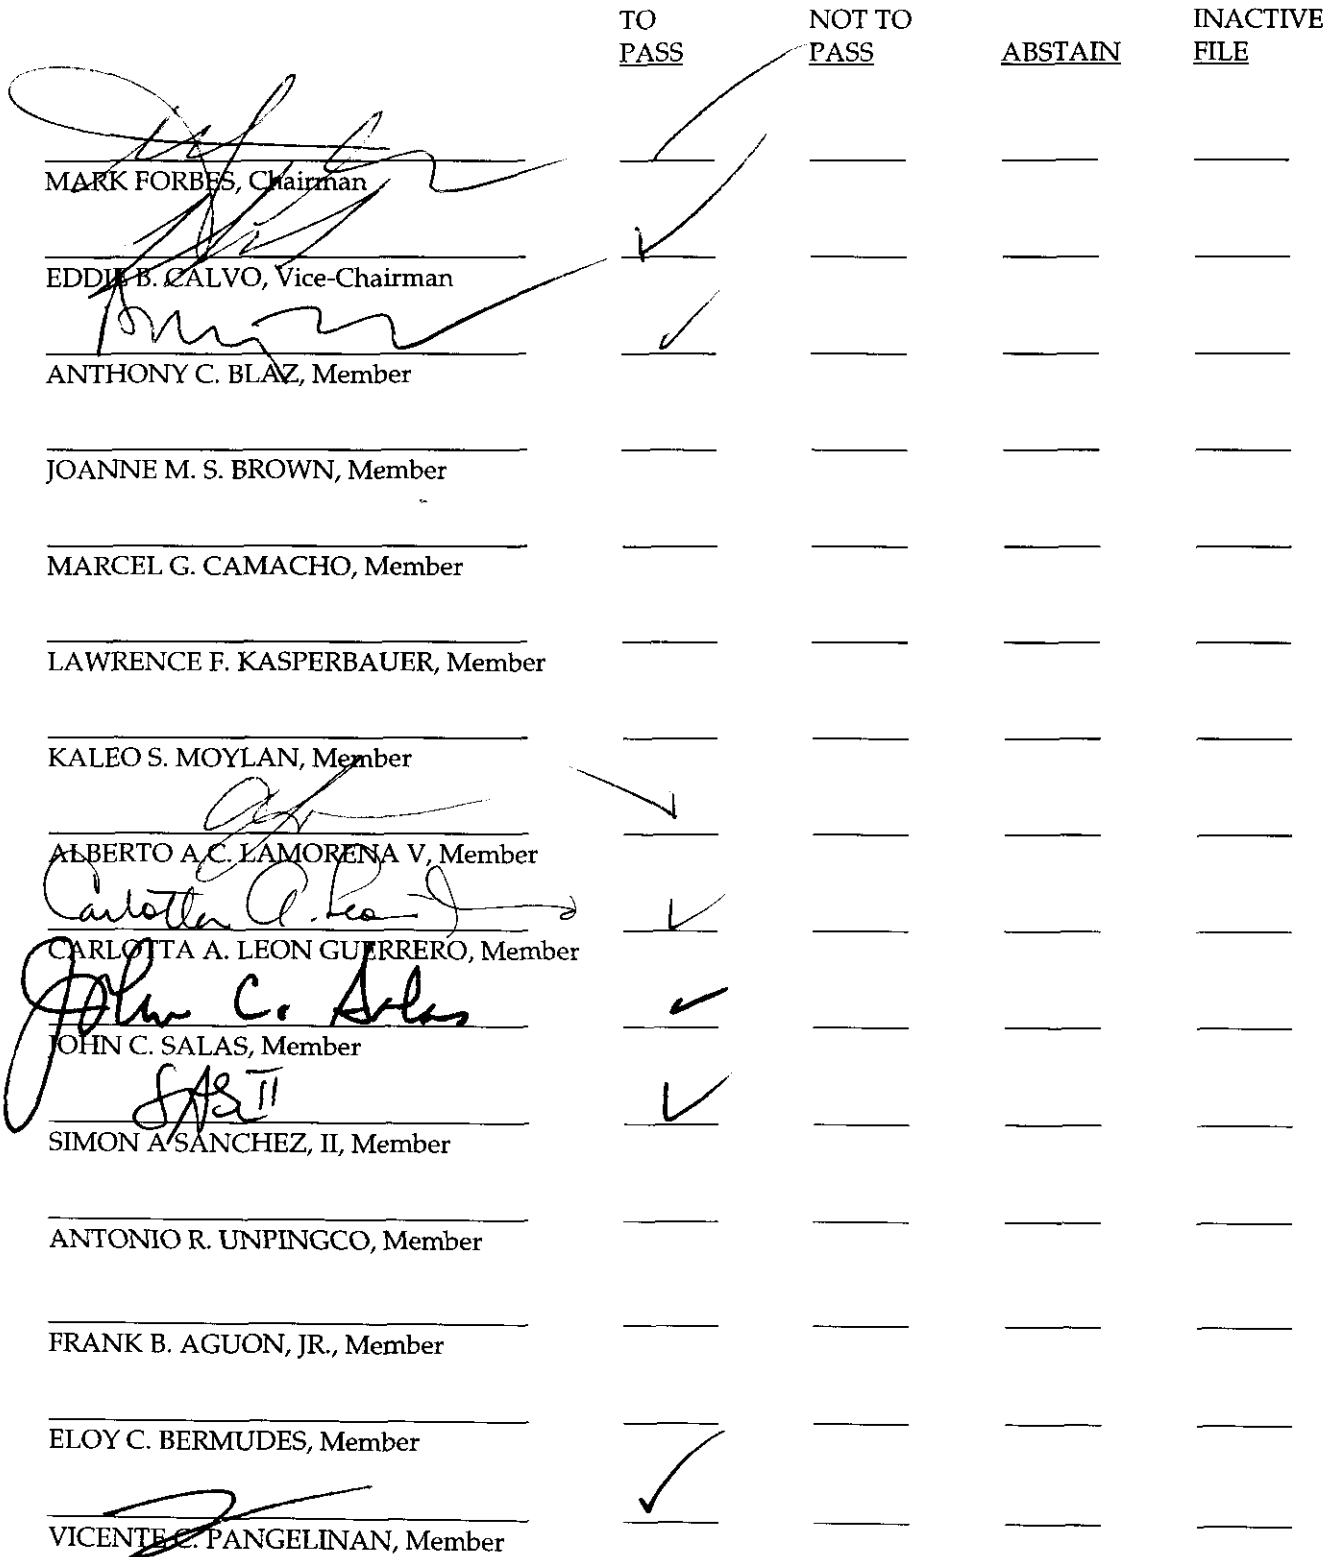 TO NOT TO INACTIVE
PASS PASS ABSTAIN FILE
MARK FORBES, Chairman
EDDIE B. CALVO, Vice-Chairman
ANTHONY C. BLAZ, Member
JOANNE M. S. BROWN, Member
MARCEL G. CAMACHO, Member
LAWRENCE F. KASPERBAUER, Member
KALEO S. MOYLAN, Member
ALBERTO A.C. LAMORENA V, Member
Carlotta A. Leo
CARLOTTA A. LEON GUERRERO, Member
John C. Salas
JOHN C. SALAS, Member
SAS II
SIMON A SANCHEZ, II, Member
ANTONIO R. UNPINGCO, Member
FRANK B. AGUON, JR., Member
ELOY C. BERMUDES, Member
VICENTE C. PANGELINAN, Member